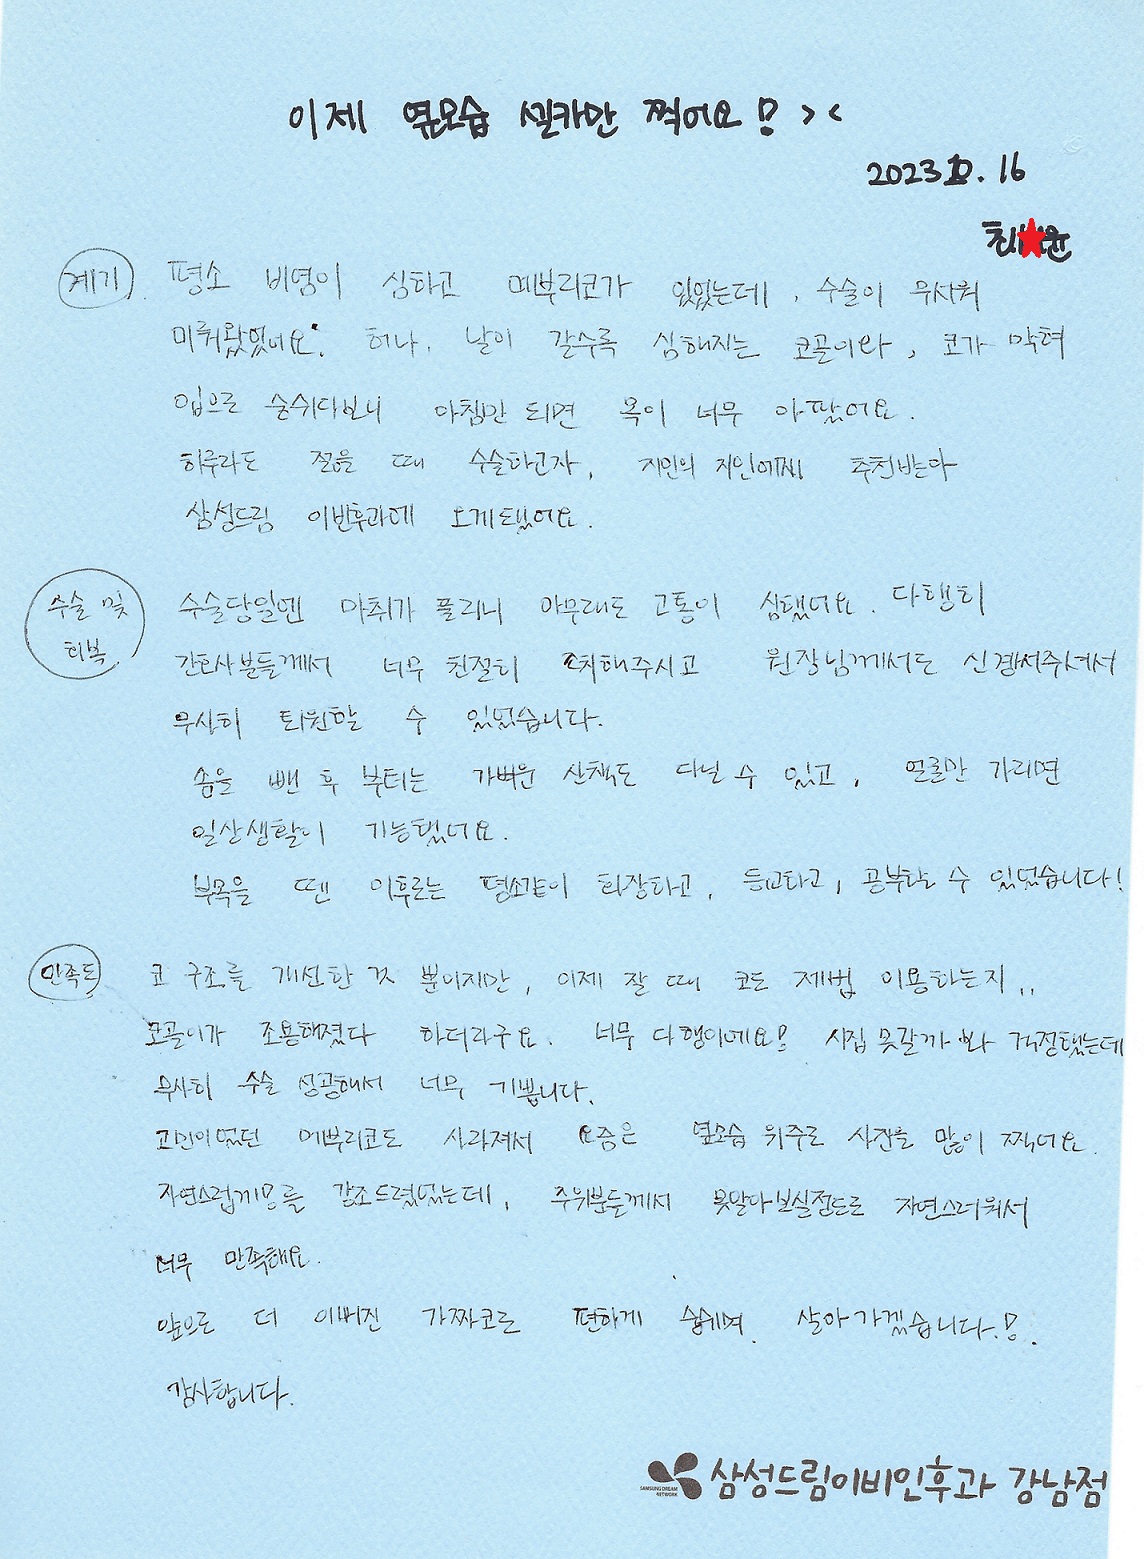 이제 옆모습 셀카만 찍어요! ><
2023.10.16
최 윤
계기 평소 비염이 심하고 메부리코가 있었는데, 수술이 무서워
미뤄왔었어요. 허나, 날이 갈수록 심해지는 코골이와, 코가 막혀
입으로 숨쉬다보니 아침만 되면 목이 너무 아팠어요.
하루라도 젊을 때 수술하고자, 지인의 지인에게 추천받아
삼성드림 이빈후과에 오게됐어요.
수술 및 회복
수술당일엔 마취가 풀리니 아무래도 고통이 심했어요. 다행히
간호사분들께서 너무 친절히 조치해주시고 원장님께서도 신경써주셔서
무사히 퇴원할 수 있었습니다.
솜을 뺀 후 부터는 가벼운 산책도 다닐 수 있고, 얼굴만 가리면
일상생활이 가능했어요.
부목을 뗀 이후로는 평소같이 화장하고, 등교하고, 공부할 수 있었습니다!
만족도 코 구조를 개선한 것 뿐이지만, 이제 잘 때 코도 제법 이용하는지..
코골이가 조용해졌다 하더라구요. 너무 다행이에요! 시집 못갈까 봐 걱정했는데
무사히 수술 성공해서 너무 기쁩니다.
고민이었던 메부리코도 사라져서 요즘은 옆모습 위주로 사진을 많이 찍어요.
자연스럽게를 강조드렸었는데, 주위분들께서 못알아보실정도로 자연스러워서
너무 만족해요.
앞으로 더 이뻐진 가짜코로 편하게 숨쉬며 살아가겠습니다.!
감사합니다.
SAMSUNG DREAM NETWORK
삼성드림이비인후과 강남점